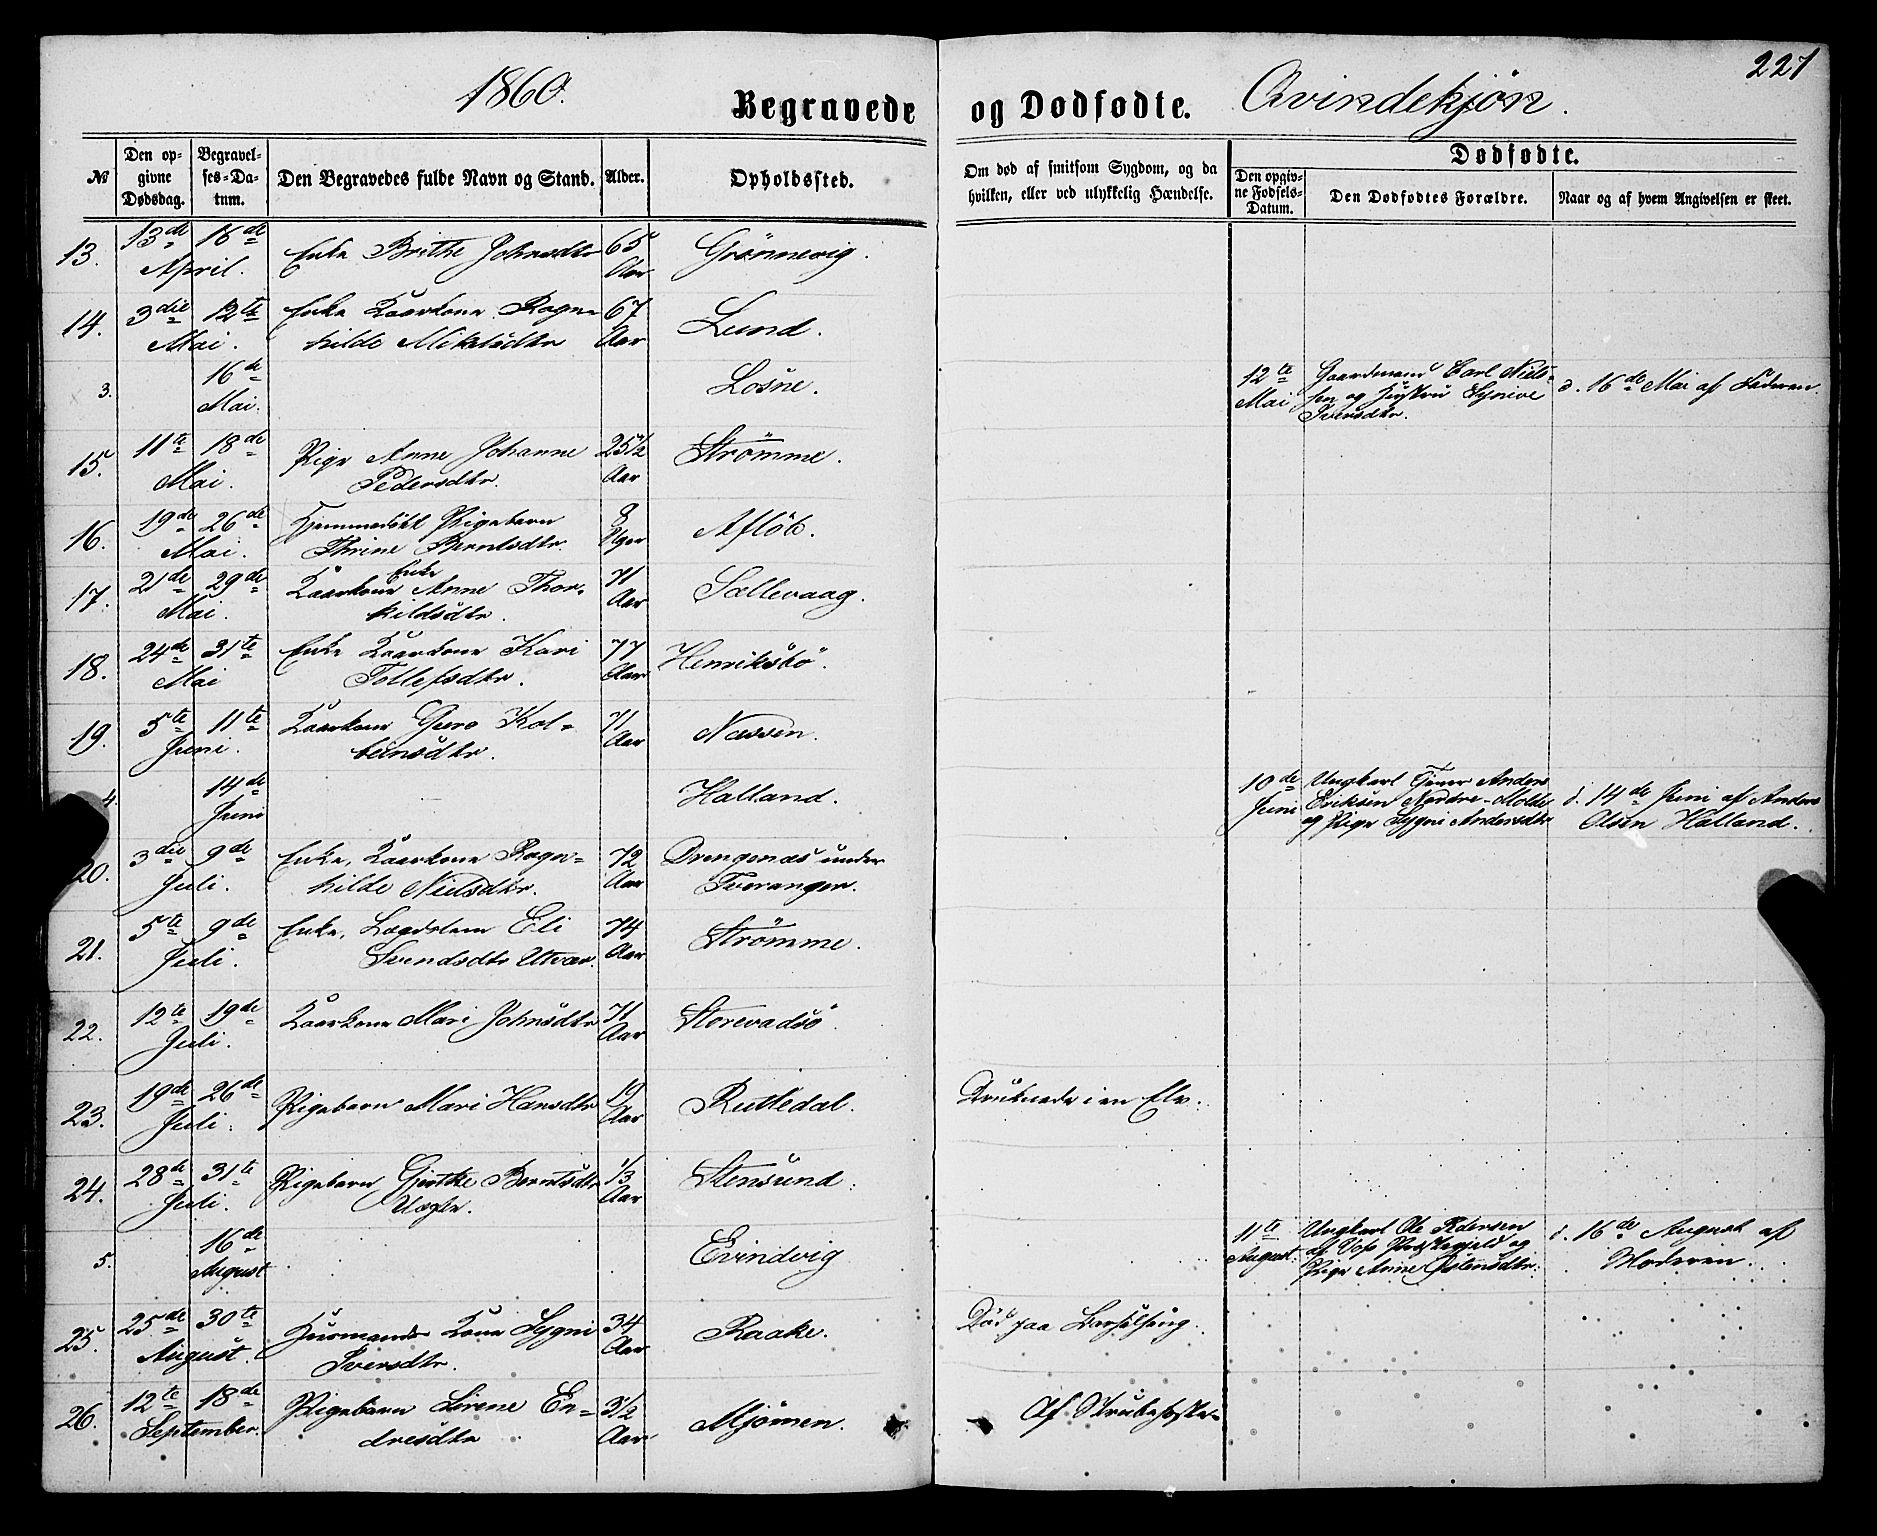 1860.
Begravede
og Dødfødte.
Qvindekjön.
221
№
Den opgivne Dødsdag.
Begravelses-Datum.
Den Begravedes fulde Navn og Stand.
Alder.
Opholdssted.
Om død af smitsom Sygdom, og da hvilken, eller ved ulykkelig Hændelse.
Dødfødte.
Den opgivne Fødsels-Datum.
Den Dødfødtes Forældre.
Naar og af hvem Angivelsen er skeet.
13. 13de 16de Enke Brithe Johnsdtr 65 Grönnevig.
April. Aar
14. 3die 12te Enke Kaarkone Ragn= 67 Lund.
Mai. hilde Mikelsdtr Aar
3. 16de Losne. 12te Gaardmand Carl Niel= d. 16de Mai af Faderen.
Mai. Mai sen og Hustru Synive
Iversdtr.
15. 11te 18de Pige Anne Johanne 25½ Strömme.
Mai. Pedersdtr. Aar
16. 19de 26de Hjemmedöbt Pigebarn 8 Aflöb.
Mai. Thrine Berntsdtr. Uger
17. 21de 29de Kaarkone Enke Anne Thor= 71 Sællevaag.
Mai. kildsdtr. Aar
18. 24de 31te Enke Kaarkone Kari 77 Henriksbö.
Mai Tollefsdtr. Aar
19. 5te 11te Kaarkone Guro Kol= 71 Næssen.
Juni. beinsdtr. Aar
4. 14de Halland. 10de Ungkarl Tjener Anders d. 14de Juni af Anders
Juni Juni Eriksen Nordre-Molde Olsen Halland.
og Pige Sygni Andersdtr
20. 3die 9de Enke, Kaarkone Ragn= 72 Drengenæs under
Juli. hilde Nielsdtr. Aar Tveranger.
21. 5te 9de Enke, Lægdslem Eli 74 Strömme.
Juli. Svendsdtr Utvær. Aar
22. 12te 19de Kaarkone Mari Johnsdtr 71
Juli. Aar
23. 19de 26de Pigebarn Mari Hansdtr Rutledal. Druknede i en Elv.
Juli. Aar
24. 28de 31te Pigebarn Gjertke Berntsdtr 1/3 Stensund.
Juli. Uægte. Aar
5. 16de Evindvig 11te Ungkarl Ole Pedersen d. 16de August af
August August. af Voss Præstegjeld og Moderen.
Pige Anne Östensdtr.
25. 25de 30te Huusmands Kone Sygni 34 Raake. Död paa Barselseng.
August. Iversdtr. Aar
26. 12te 18de Pigebarn Sirene En= 3½ Mjömen. Af Strubehoste
September. dresdtr Aar